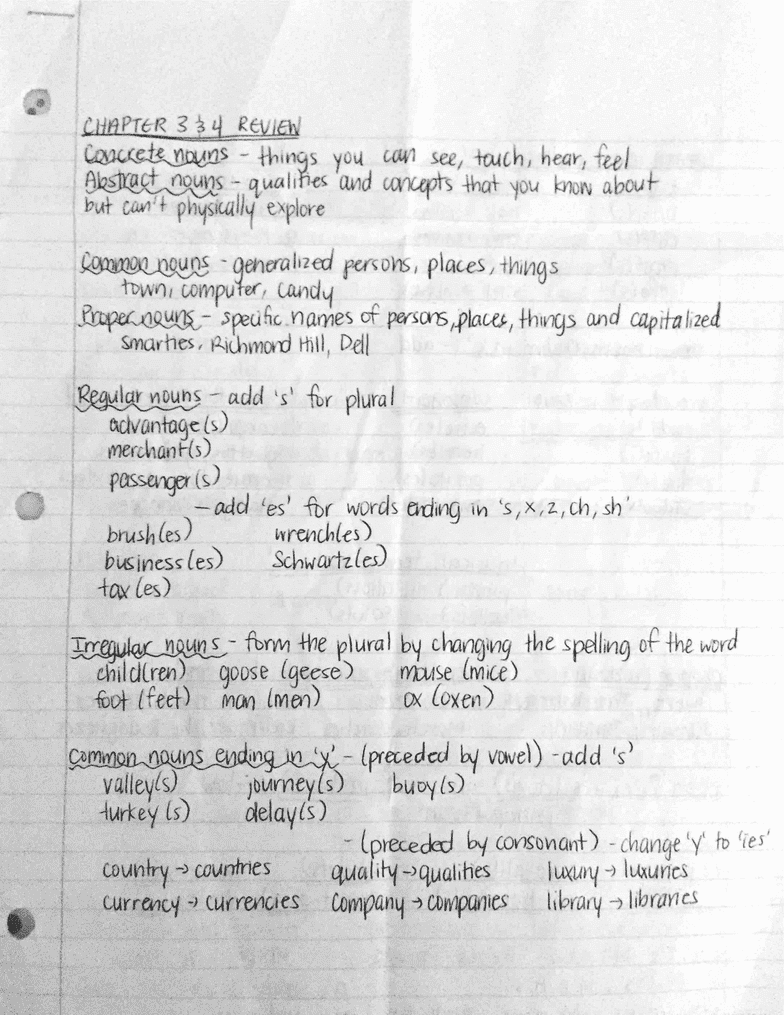 CHAPTER 3 & 4 REVIEW
Concrete nouns - things you can see, touch, hear, feel
Abstract nouns - qualities and concepts that you know about
but can't physically explore
Common nouns - generalized persons, places, things
town, computer, candy
Proper nouns - specific names of persons, places, things and capitalized
Smarties, Richmond Hill, Dell
Regular nouns - add 's' for plural
advantage(s)
merchant(s)
passenger(s)
- add 'es' for words ending in 's, x, z, ch, sh'
brush(es) wrench(es)
business(es) Schwartz(es)
tax(es)
Irregular nouns - form the plural by changing the spelling of the word
child(ren) goose (geese) mouse (mice)
foot (feet) man (men) ox (oxen)
Common nouns ending in 'y' - (preceded by vowel) - add 's'
valley(s) journey(s) buoy(s)
turkey(s) delay(s)
- (preceded by consonant) - change 'y' to 'ies'
country → countries quality → qualities luxury → luxuries
currency → currencies company → companies library → libraries